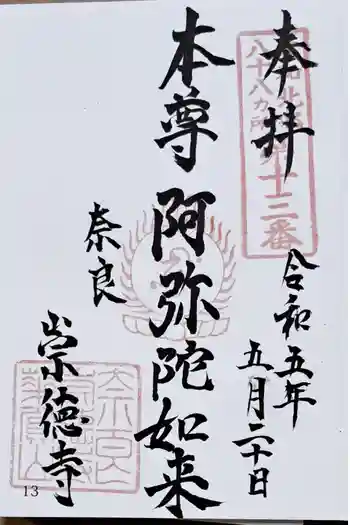 奉拝
八十八カ所第十三番
令和五年
五月二十日
本尊 阿弥陀如来
奈良
崇徳寺
13